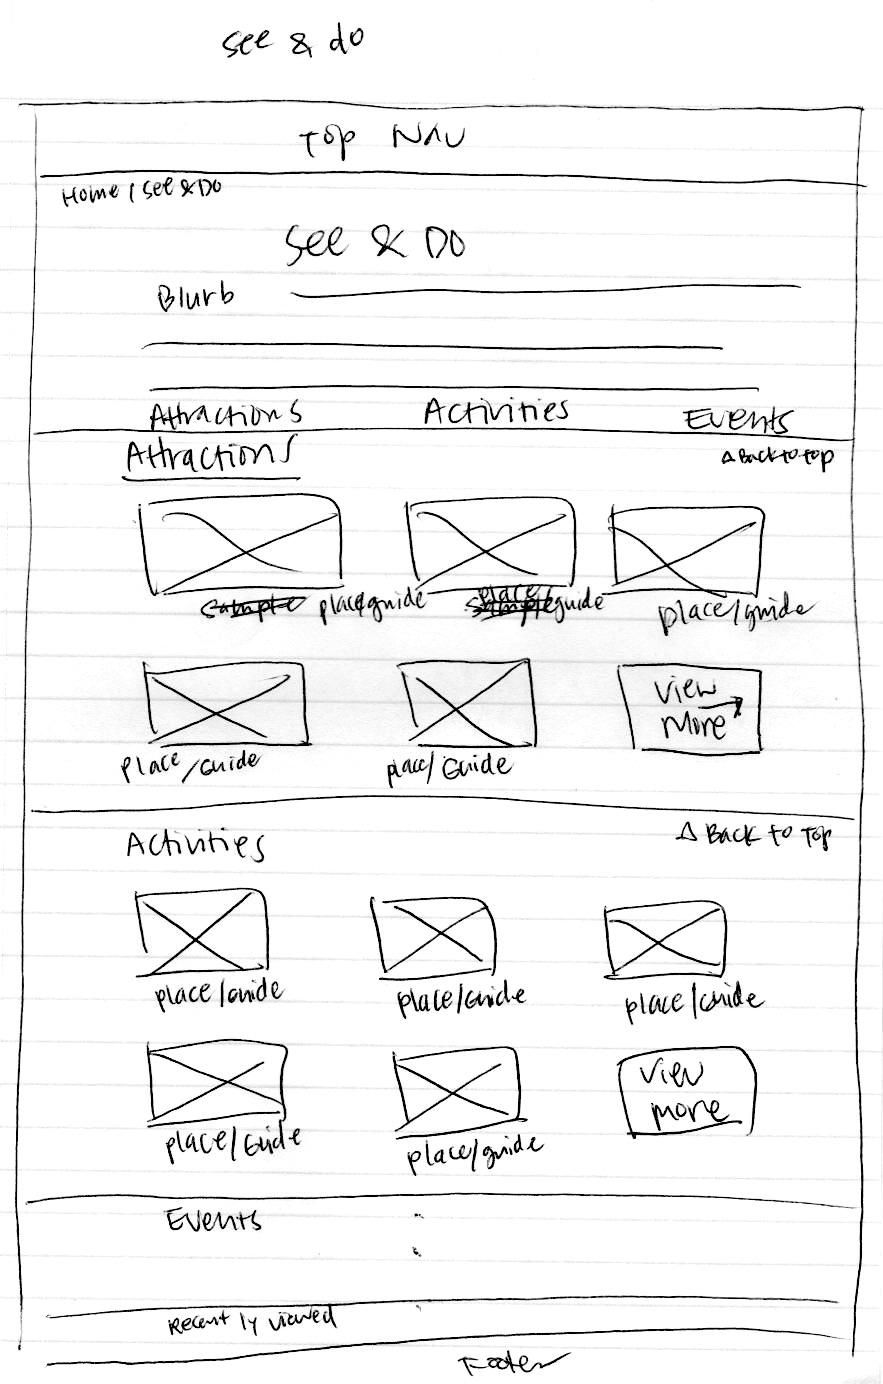 see & do
Top NAV
Home / See & Do
See & Do
Blurb
Attractions Activities Events
Attractions
Back to top
place/guide place/guide place/guide
View
More
Place/Guide place/Guide
Activities
Back to Top
place/Guide place/Guide place/Guide
View
more
place/Guide place/guide
Events
Recently viewed
Footer